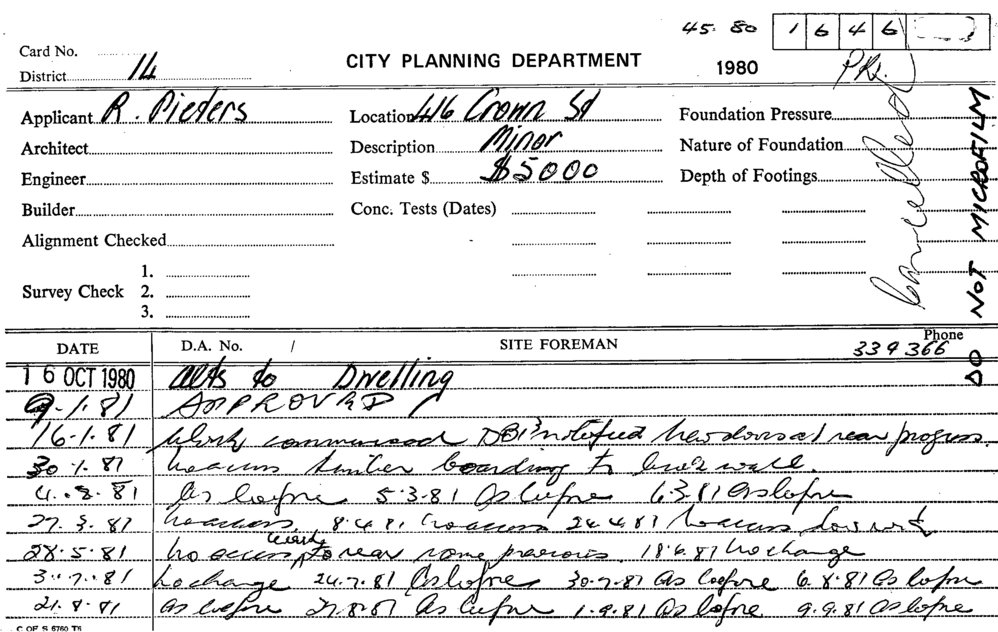 45 80 1 6 4 6
Card No.
District 14
CITY PLANNING DEPARTMENT
1980
Applicant R. Pieters
Location 416 Crown St
Foundation Pressure
Architect
Description Minor
Nature of Foundation
Engineer
Estimate $ $5000
Depth of Footings
Builder
Conc. Tests (Dates)
Alignment Checked
Survey Check
1.
2.
3.
Cancelled
DO NOT MICROFILM
DATE D.A. No. / SITE FOREMAN Phone 339366
16 OCT 1980 alts to Dwelling
9-1-81 APPROVED
16-1-81 Work commenced notified new doors at rear progress.
30 1.81 no access timber boarding to wall.
4..81 As before 5.3.81 As before 6 3.81 As before
27.3.81 no access. 8.4.81 no access 24.4.81 no access
28.5.81 no access to rear same previous 18.6.81 no change
3.7.81 no change 24.7.81 As before 30.7.81 As before 6.8.81 As before
21.8.81 as before 27.8.81 As before 1.9.81 As before 9.9.81 As before
C OF S 6760 T6